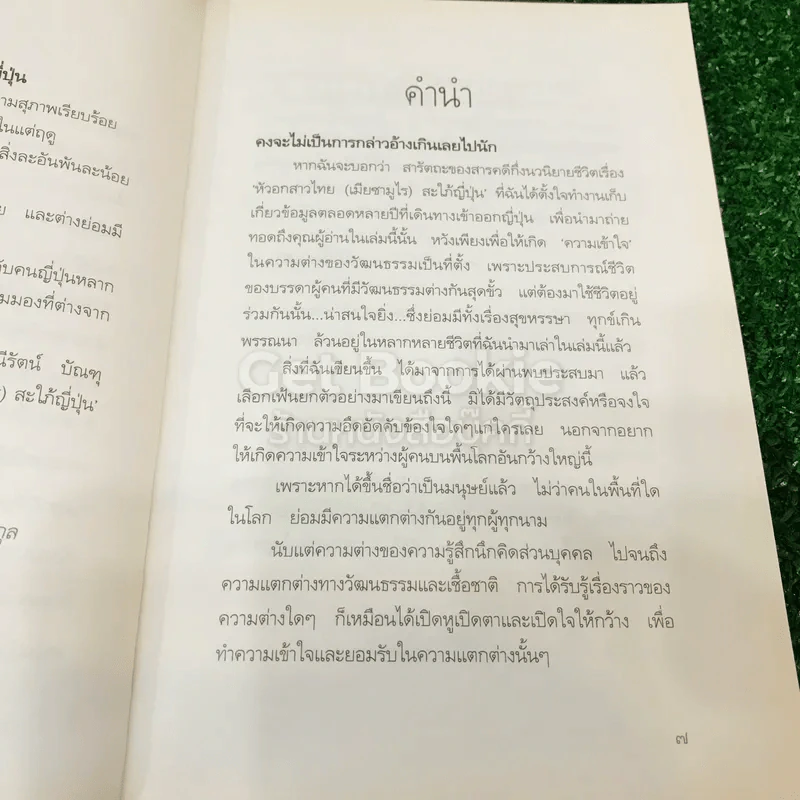 ี่ปุ่น
ามสุภาพเรียบร้อย
ในแต่ฤดู
สิ่งละอันพันละน้อย
ย และต่างย่อมมี
ับคนญี่ปุ่นหลาก
มมองที่ต่างจาก
ณีรัตน์ บัณฑุ
) สะใภ้ญี่ปุ่น'
กุล
คำนำ
คงจะไม่เป็นการกล่าวอ้างเกินเลยไปนัก
หากฉันจะบอกว่า สารัตถะของสารคดีกึ่งนวนิยายชีวิตเรื่อง
'หัวอกสาวไทย (เมียซามูไร) สะใภ้ญี่ปุ่น' ที่ฉันได้ตั้งใจทำงานเก็บ
เกี่ยวข้อมูลตลอดหลายปีที่เดินทางเข้าออกญี่ปุ่น เพื่อนำมาถ่าย
ทอดถึงคุณผู้อ่านในเล่มนี้นั้น หวังเพียงเพื่อให้เกิด 'ความเข้าใจ'
ในความต่างของวัฒนธรรมเป็นที่ตั้ง เพราะประสบการณ์ชีวิต
ของบรรดาผู้คนที่มีวัฒนธรรมต่างกันสุดขั้ว แต่ต้องมาใช้ชีวิตอยู่
ร่วมกันนั้น...น่าสนใจยิ่ง...ซึ่งย่อมมีทั้งเรื่องสุขหรรษา ทุกข์เกิน
พรรณนา ล้วนอยู่ในหลากหลายชีวิตที่ฉันนำมาเล่าในเล่มนี้แล้ว
สิ่งที่ฉันเขียนขึ้น ได้มาจากการได้ผ่านพบประสบมา แล้ว
เลือกเฟ้นยกตัวอย่างมาเขียนถึงนี้ มิได้มีวัตถุประสงค์หรือจงใจ
ที่จะให้เกิดความอึดอัดคับข้องใจใดๆแก่ใครเลย นอกจากอยาก
ให้เกิดความเข้าใจระหว่างผู้คนบนพื้นโลกอันกว้างใหญ่นี้
เพราะหากได้ขึ้นชื่อว่าเป็นมนุษย์แล้ว ไม่ว่าคนในพื้นที่ใด
ในโลก ย่อมมีความแตกต่างกันอยู่ทุกผู้ทุกนาม
นับแต่ความต่างของความรู้สึกนึกคิดส่วนบุคคล ไปจนถึง
ความแตกต่างทางวัฒนธรรมและเชื้อชาติ การได้รับรู้เรื่องราวของ
ความต่างใดๆ ก็เหมือนได้เปิดหูเปิดตาและเปิดใจให้กว้าง เพื่อ
ทำความเข้าใจและยอมรับในความแตกต่างนั้นๆ
๗
Get Bookie
ร้านหนังสือบุ๊คกี้